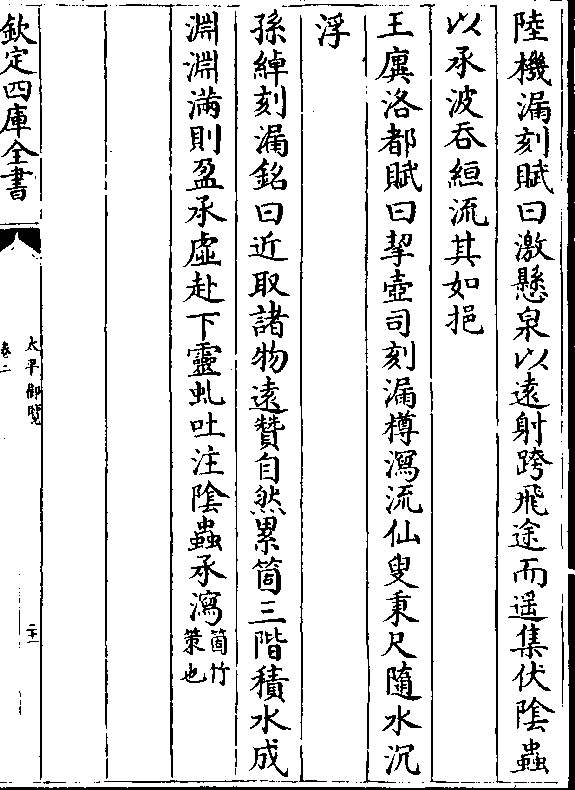 陸機漏刻賦曰激懸泉以遠射跨飛途而遥集伏陰蟲
以承波吞絙流其如挹
王廙洛都賦曰挈壺司刻漏樽瀉流仙叟秉尺隨水沉
浮
孫綽刻漏銘曰近取諸物遠贊自然累筒三階積水成
淵淵滿則盈承虛赴下靈虬吐注陰蟲承瀉筒竹䇿也
欽定四庫全書
太平御覽
卷二
二十一